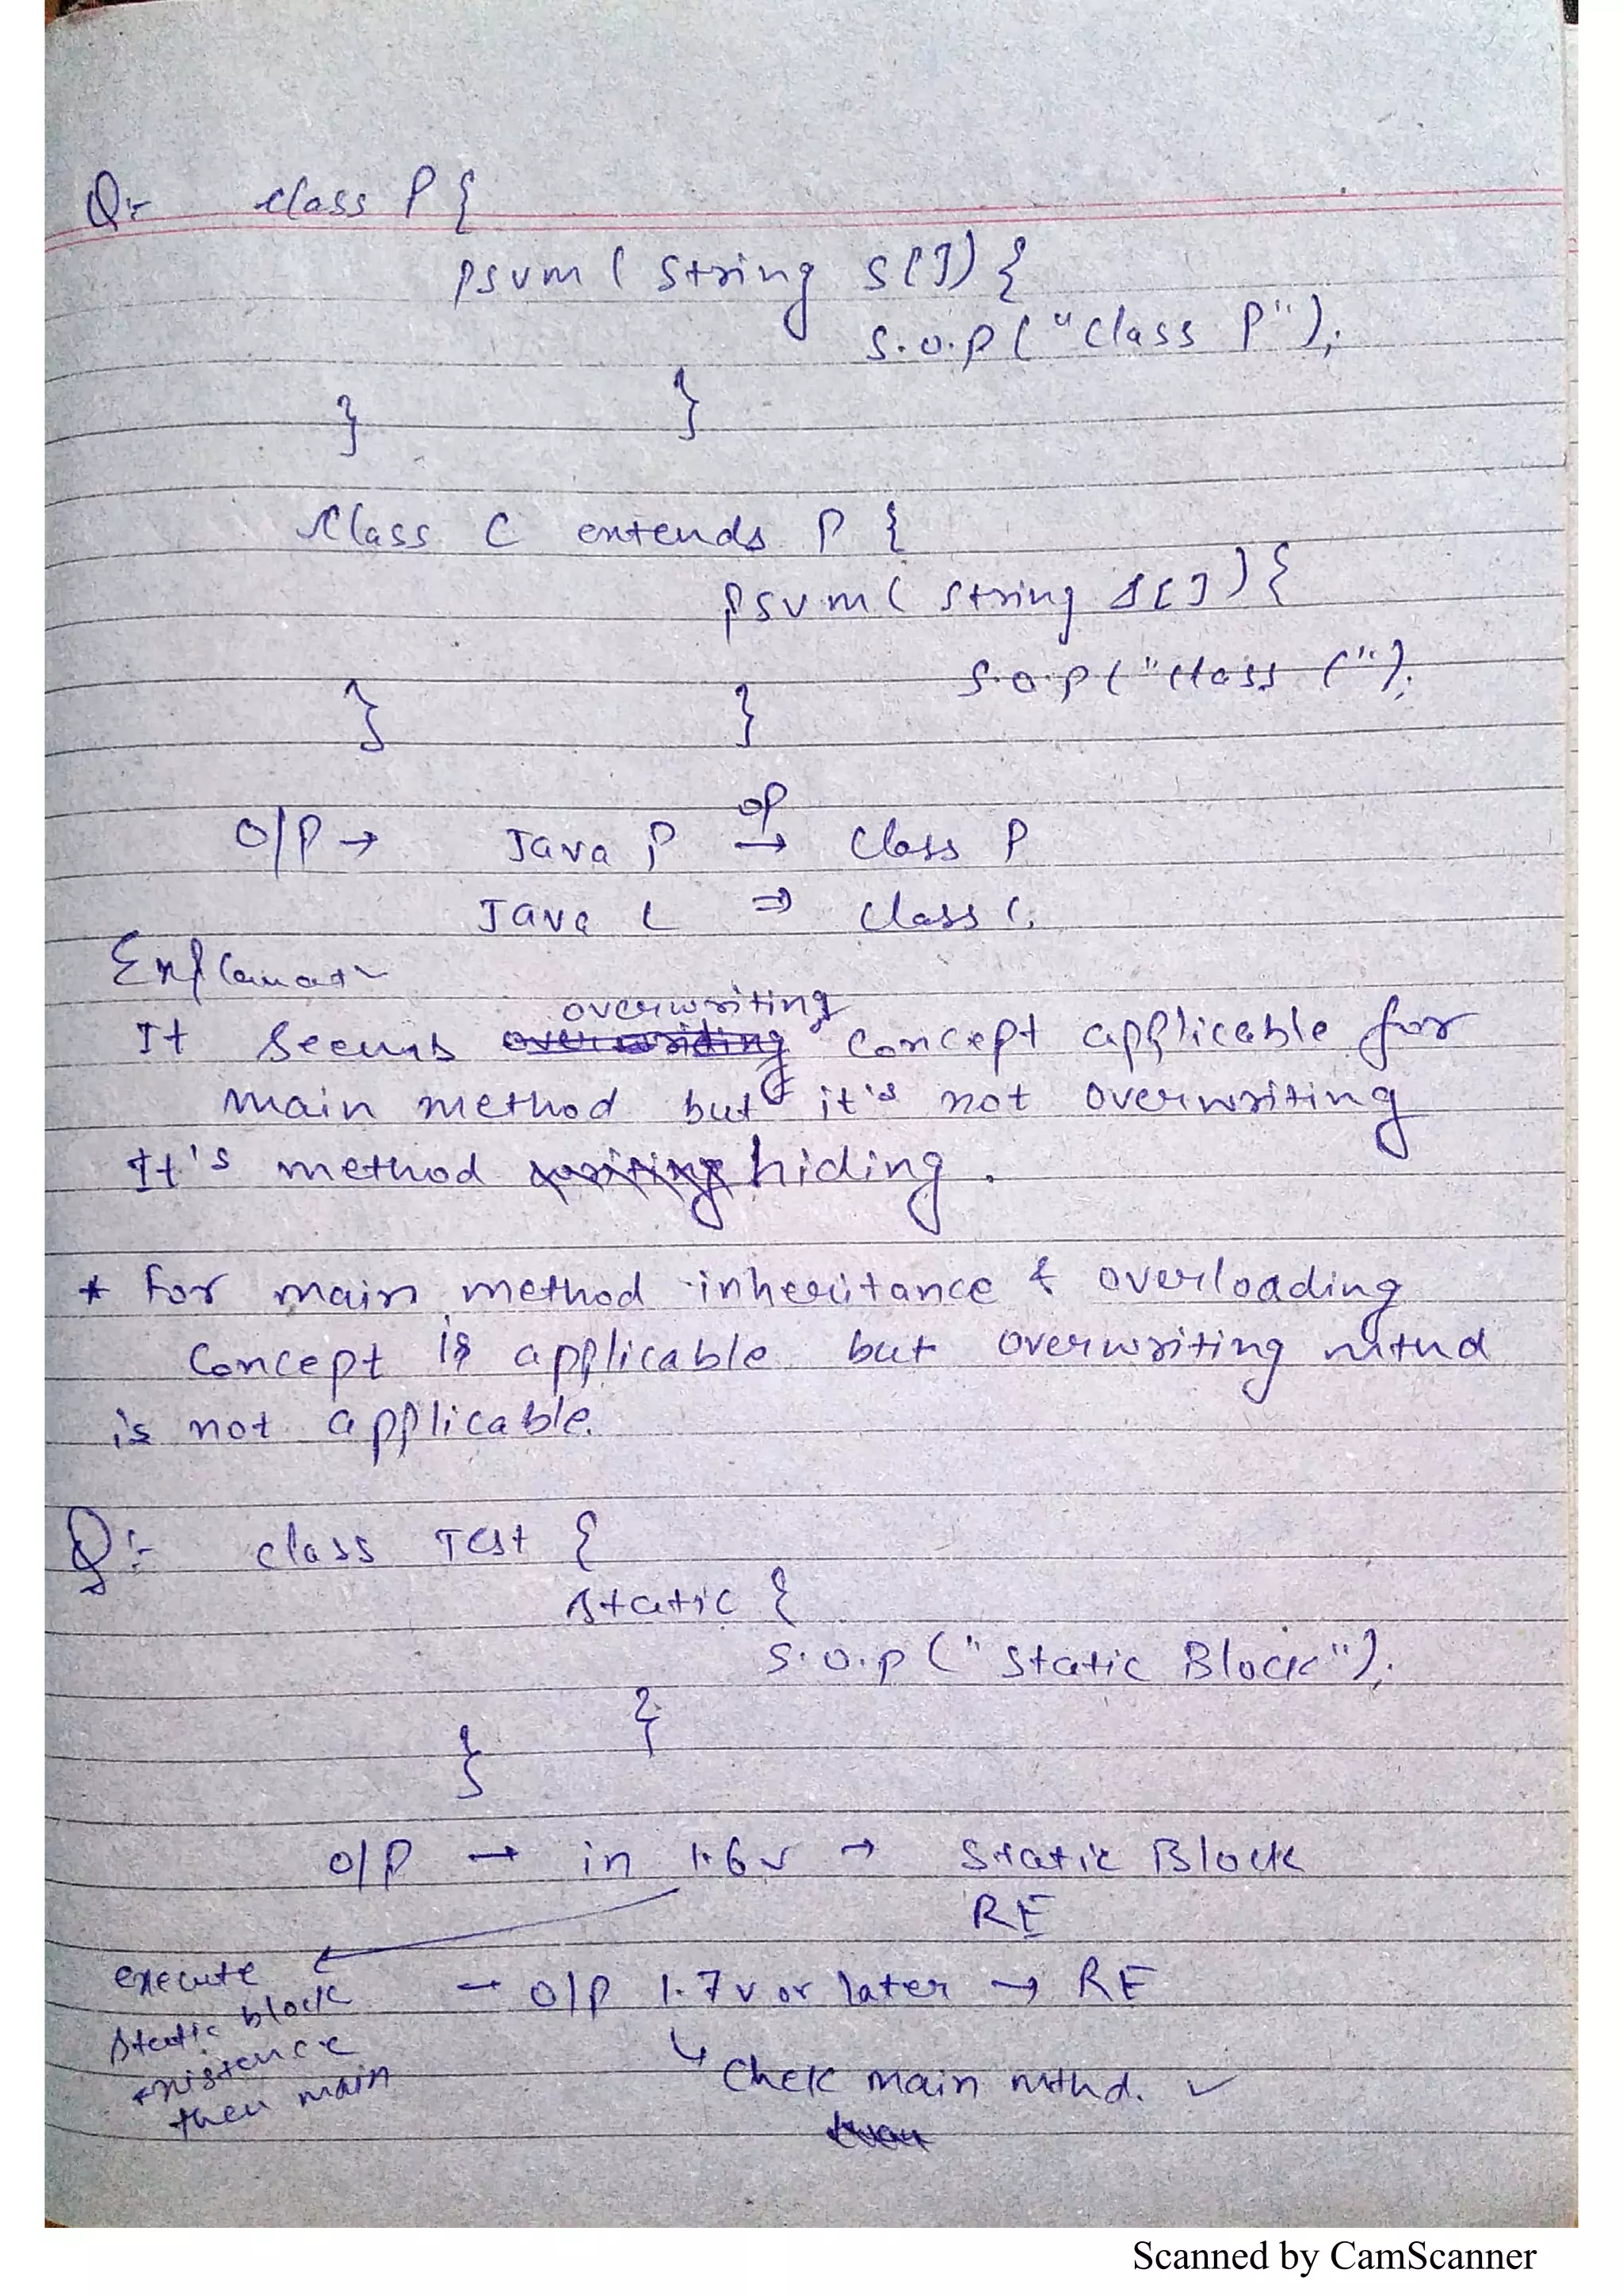 Q:- class P {
psvm ( String s[]) {
S.o.p ( "class P" );
}
}
class C extends P {
psvm ( String s[] ) {
S.o.p ( "class C" );
}
}
O/P → Java P op → Class P
Java C ⇒ class C.
Explanat~
overwriting
It seems concept applicable for
main method but it's not overwriting
It's method hiding.
* For main method inheritance & overloading
Concept is applicable but overwriting mthd
is not applicable.
Q:- class Test {
static {
S.o.p ( " Static Block" );
}
}
O/P → in 1.6 v → Static Block
RE
execute
static block
existence
then main
→ O/P 1.7 v or later → RE
↳ Check main mthd. ✓
Scanned by CamScanner